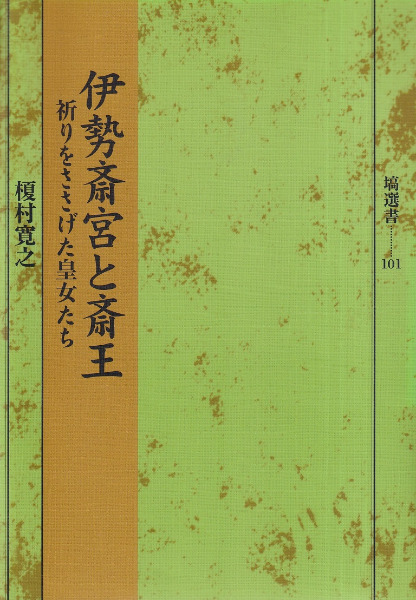 塙選書…………101
伊勢斎宮と斎王
祈りをささげた皇女たち
榎村寛之